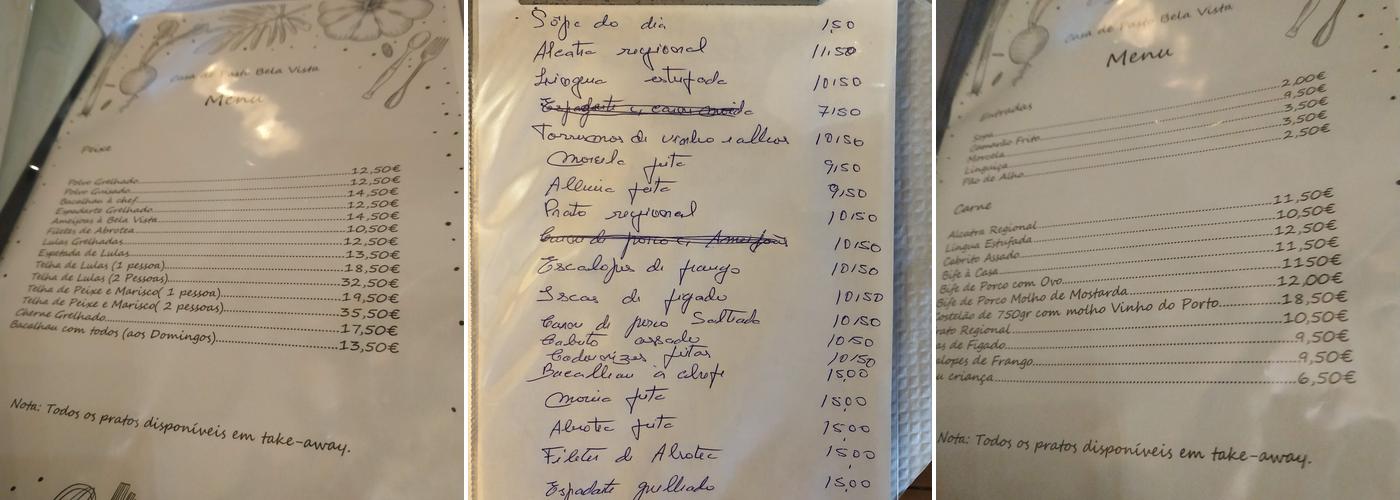 Casa de Pasto Bela Vista
Menu
Peixe
Polvo Grelhado 12,50€
Polvo Guisado 12,50€
Bacalhau à chef 14,50€
Espadarte Grelhado 12,50€
Ameijoas à Bela Vista 14,50€
Filetes de Abrotea 10,50€
Lulas Grelhadas 12,50€
Espetada de Lulas 13,50€
Telha de Lulas (1 pessoa) 18,50€
Telha de Lulas (2 Pessoas) 32,50€
Telha de Peixe e Marisco( 1 pessoa) 19,50€
Telha de Peixe e Marisco( 2 pessoas) 35,50€
Cherne Grelhado 17,50€
Bacalhau com todos (aos Domingos) 13,50€
Nota: Todos os pratos disponíveis em take-away.
Sopa do dia 1,50
Alcatra regional 11,50
Língua estufada 10,50
7,50
Torresmos de vinho e alhos 10,50
Morcela frita 9,50
Alheira frita 9,50
Prato regional 10,50
Carne de porco c/ Ameijoas 10,50
Escalopes de frango 10,50
Iscas de figado 10,50
Carne de porco Salteado 10,50
Cabrito assado 10,50
Codornizes fritas 10,50
Bacalhau à chefe 15,00
Moreia frita 15,00
Abrotea frita 15,00
Filetes de Abrotea 15,00
Espadarte grelhado 15,00
Casa de Pasto Bela Vista
Menu
Entradas
Sopa 2,00€
Camarão Frito 9,50€
Morcela 3,50€
Linguiça 3,50€
Pão de Alho 2,50€
Carne
Alcatra Regional 11,50€
Língua Estufada 10,50€
Cabrito Assado 12,50€
Bife à Casa 11,50€
Bife de Porco com Ovo 1150€
Bife de Porco Molho de Mostarda 12,00€
ostelão de 750gr com molho Vinho do Porto 18,50€
rato Regional 10,50€
as de Figado 9,50€
alopes de Frango 9,50€
u criança 6,50€
Nota: Todos os pratos disponíveis em take-away.